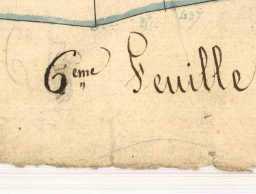 6eme Feuille